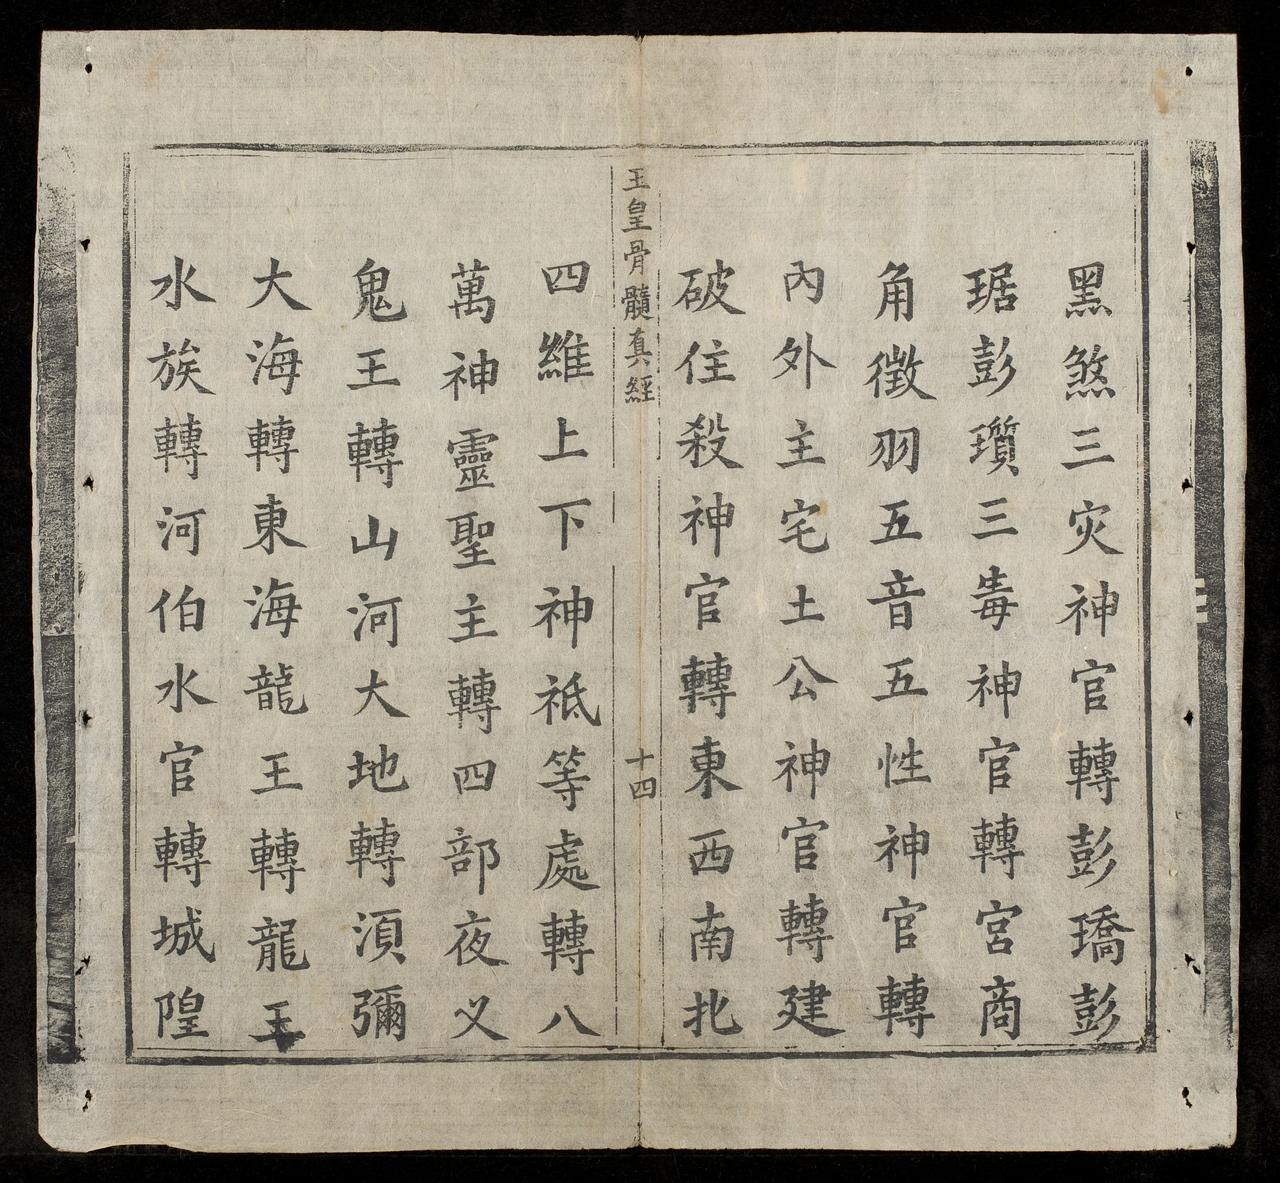 黑煞三灾神官轉彭璚彭
琚彭瓆三毒神官轉宮商
角徵羽五音五性神官轉
內外主宅土公神官轉建
破住殺神官轉東西南北
玉皇骨髓真經
十四
四維上下神祇等處轉八
萬神靈聖主轉四部夜义
鬼王轉山河大地轉湏彌
大海轉東海龍王轉龍王
水族轉河伯水官轉城隍